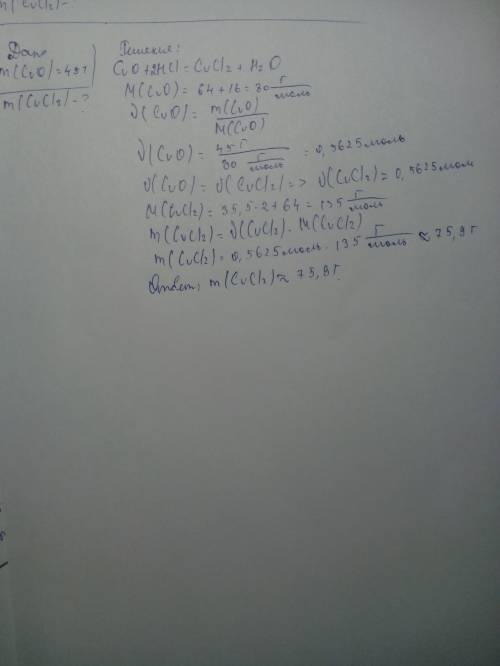 m(CuCl₂)-
Дано
m(CuO)=45г
m(CuCl₂)-?
Решение:
CuO+2HCl=CuCl₂+H₂O
M(CuO)=64+16=80 г/моль
ν(CuO)= m(CuO)/M(CuO)
ν(CuO)= 45г/80 г/моль = 0,5625моль
ν(CuO)=ν(CuCl₂)=> ν(CuCl₂)=0,5625мол
M(CuCl₂)=35,5·2+64=135 г/моль
m(CuCl₂)=ν(CuCl₂)·M(CuCl₂)
m(CuCl₂)=0,5625моль·135 г/моль ≈75,9г
Ответ: m(CuCl₂)≈75,9г